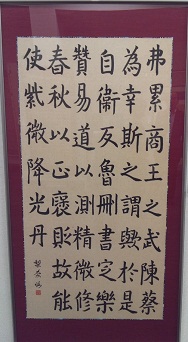 弗累商王之武陳蔡
為幸斯之謂歟於是
自衞反魯刪書定樂
贊易道以測精微修
春秋以正褒貶故能
使紫微降光丹